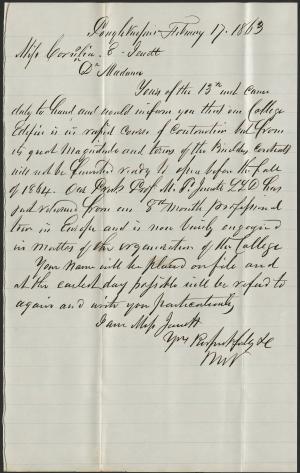 Poughkeepsie February 17. 1863
Miss Corintia E
Dr Madame
Yours of the 13th inst came
duly to hand and would inform you that our College
Edifice is in rapid course of Construction but from
its great Magnitude and terms of the Building Contracts
will not be finished ready to open before the fall
of 1864. Our Prest Prof M. P. Jewett LLD has
just returned from an 8th Month professional
tour in Europe and is now busily engaged
in matters of the organisation of the College
Your Name will be placed on file and
at the earliest day possible will be referd to
again and write you particularly
I am Miss
Yrs Respectfully &c
MV